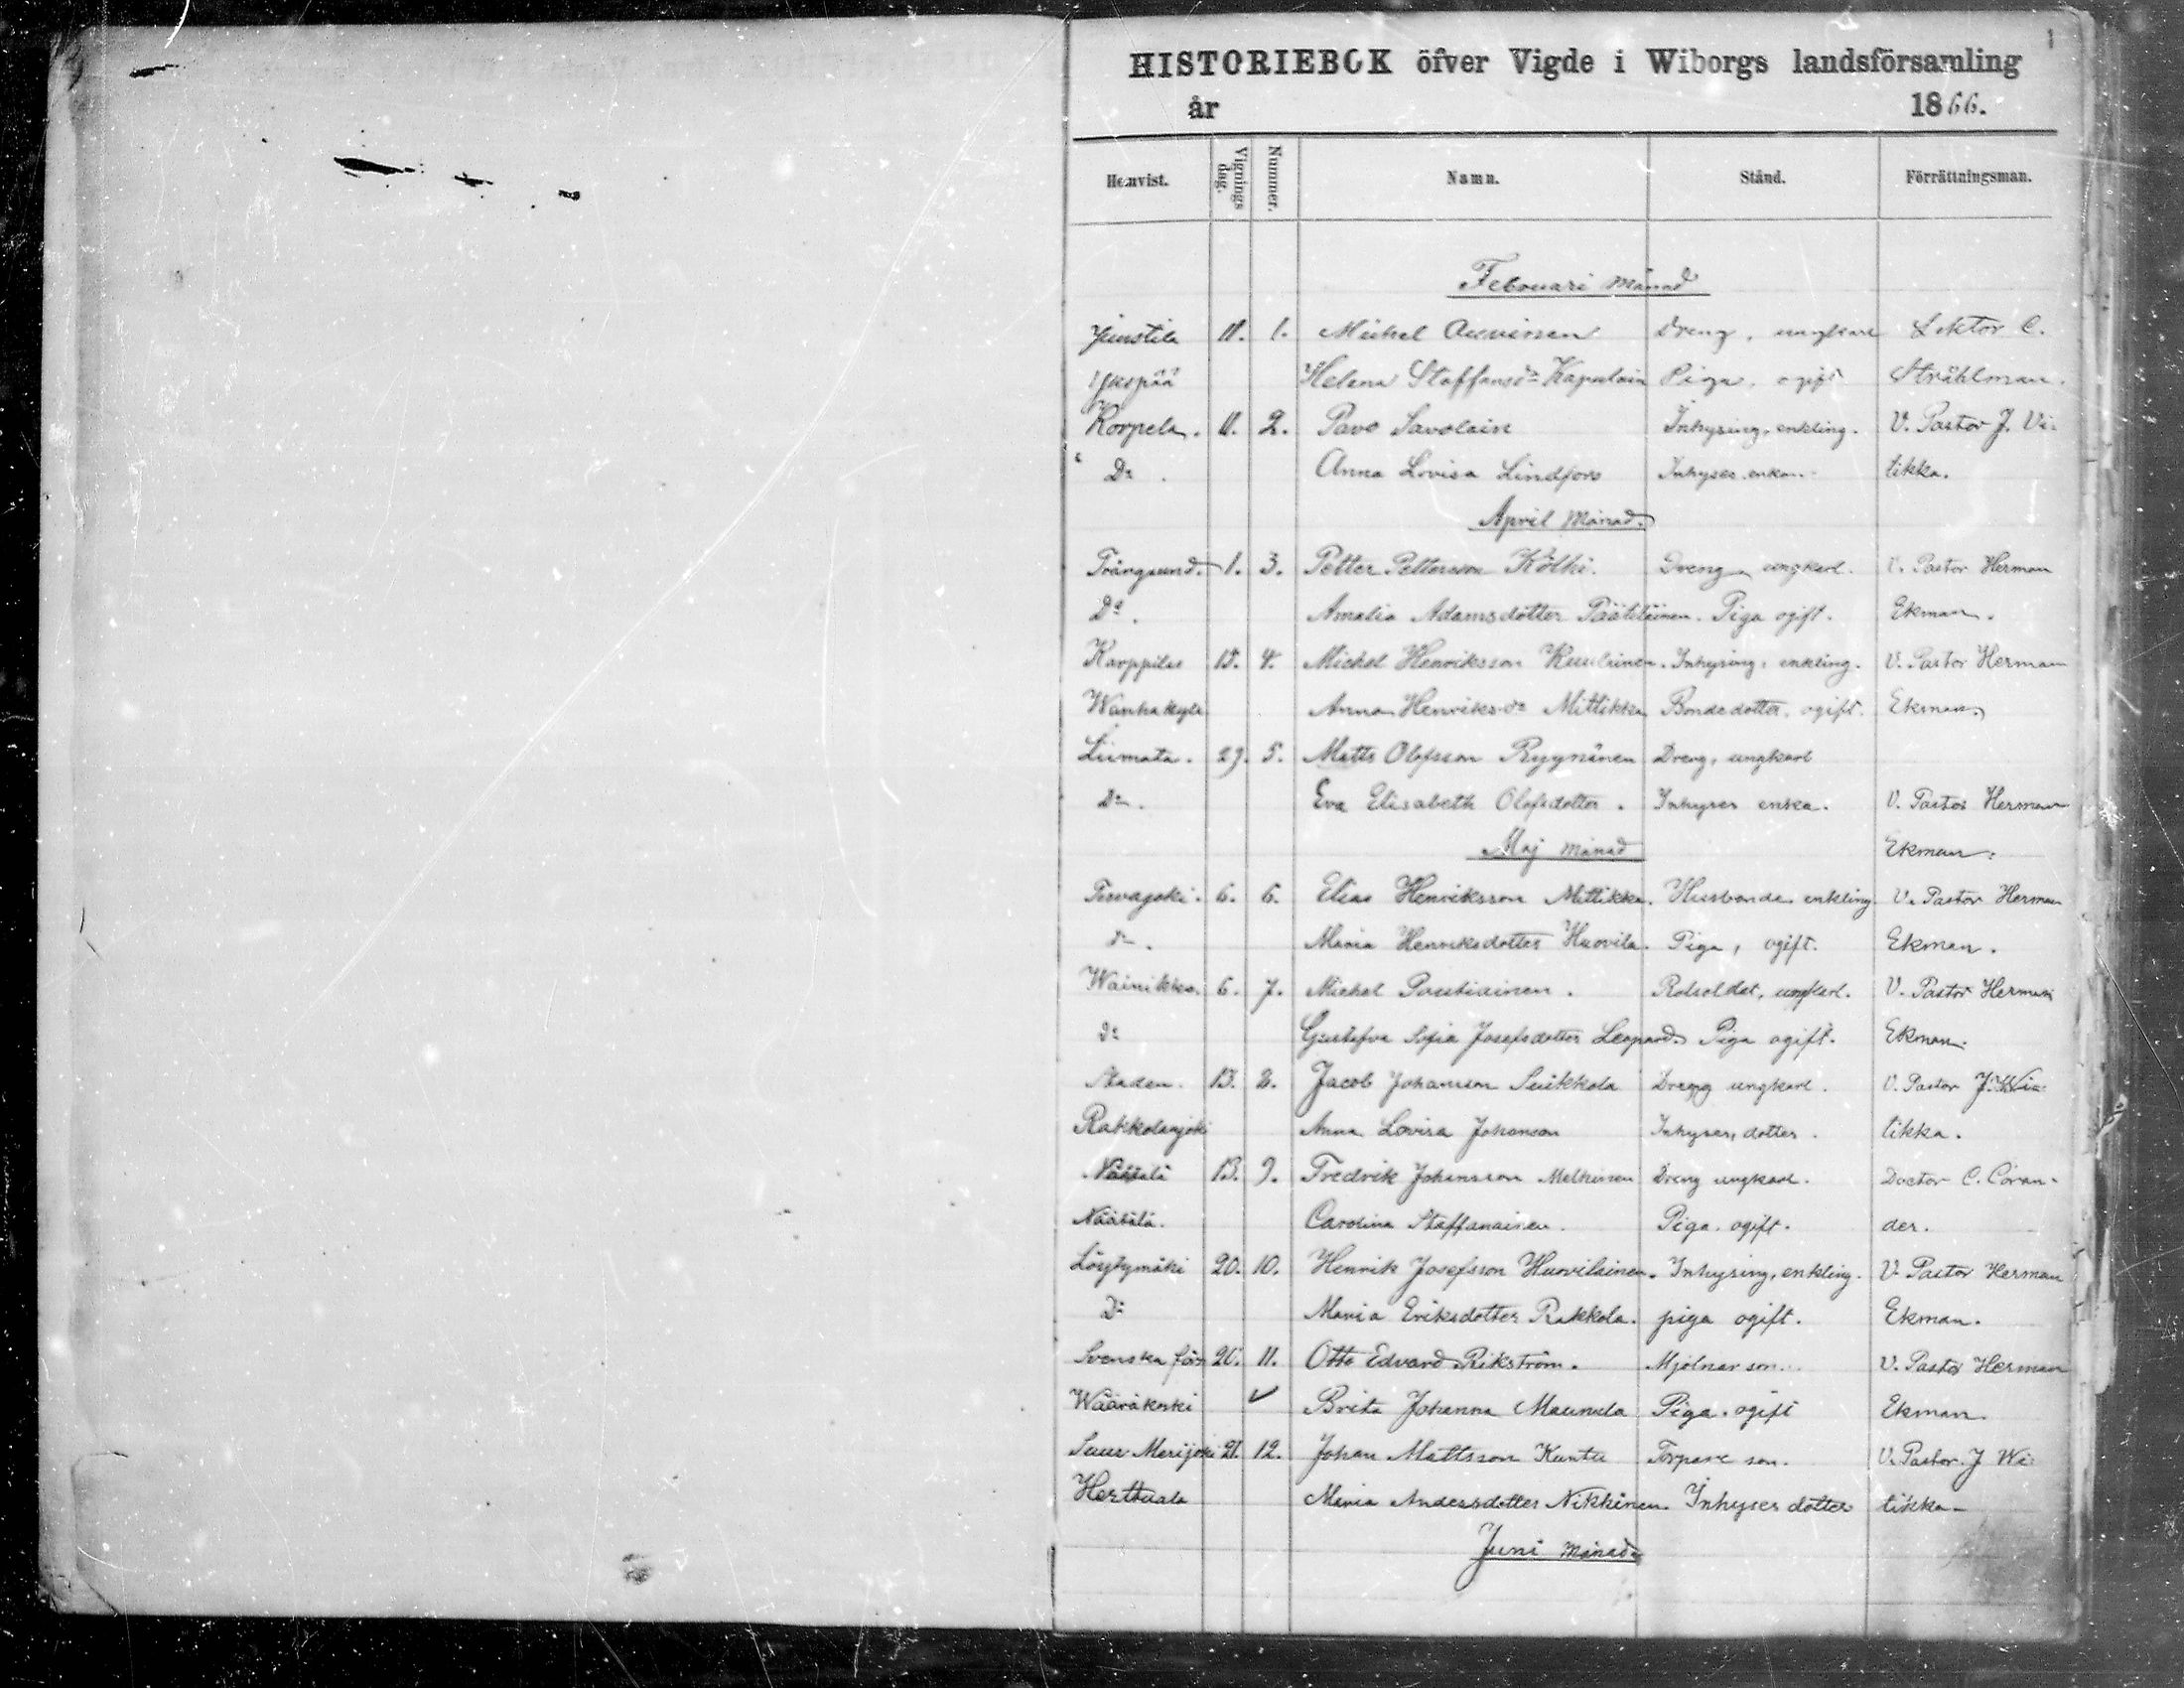 1
HISTORIEBOK öfver Vigde i Wiborgs landsförsamling
år 1866.
Hemvist. Vignings dag. Nummer. Namn. Stånd. Förrättningsman.
Februari månad
Juustila 11. 1. Michel Auvinen Dreng, ungkarl Lektor C.
Ykspää Helena Staffansdr Kapulain Piga, ogift Stråhlman.
Korpela. 11. 2. Pavo Savolain Inhysing, enkling. V. Pastor J. Vi-
Do. Anna Lovisa Lindfors Inhyses enka. tikka.
April månad.
Trångsund. 1. 3. Petter Pettersson Kölhi. Dreng ungkarl. V. Pastor Herman
Do. Amalia Adamsdotter Päätiläinen. Piga ogift. Ekman.
Karppila 15. 4. Michel Henriksson Kuulainen. Inhysing, enkling. V. Pastor Herman
Wanhakylä Anna Henriksdr Mittikka Bondedotter, ogift. Ekman.
Liimata. 29. 5. Matts Olofsson Ryynänen Dreng, ungkarl
Do. Eva Elisabeth Olofsdotter. Inhyses enka. V. Pastor Herman
Maj månad Ekman.
Tervajoki. 6. 6. Elias Henriksson Mittikka. Husbonde enkling V. Pastor Herman
do. Maria Henriksdotter Huovila. Piga, ogift. Ekman.
Wainikka. 6. 7. Michel Pastiainen. Rotsoldat, ungkarl. V. Pastor Herman
do Gustafva Sofia Josefsdotter Leopard. Piga ogift. Ekman.
Staden. 13. 8. Jacob Johansson Suikkola Dreng ungkarl. V. Pastor J. Wi-
Rakkolanjoki Anna Lovisa Johanson Inhyses, dotter. tikka.
Näätälä 13. 9. Fredrik Johansson Melkinen Dreng ungkarl. Doctor C. Coran-
Näätälä. Carolina Staffanainen. Piga. ogift. der.
Löytymäki 20. 10. Henrik Josefsson Huovilainen. Inhysing, enkling. V. Pastor Herman
Do Maria Eriksdotter Rakkola. piga ogift. Ekman.
Svenska förs 21. 11. Otto Edvard Rikström. Mjölnar son. V. Pastor Herman
Wääräkoski ✓ Brita Johanna Maunula Piga. ogift Ekman.
Suur Merijoki 21. 12. Johan Mattsson Kuntu Torpare son. V. Pastor. J Wi-
Herttuala Maria Andersdotter Nikkinen. Inhyses dotter tikka-
Juni månad